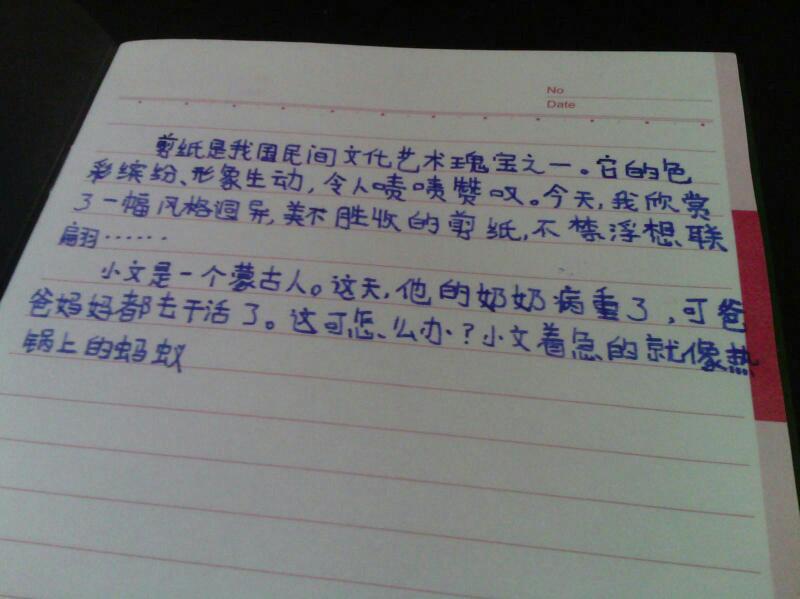 No
Date
剪纸是我国民间文化艺术瑰宝之一。它的色
彩缤纷、形象生动,令人啧啧赞叹。今天,我欣赏
了一幅风格迥异,美不胜收的剪纸,不禁浮想联
扁羽……
小文是一个蒙古人。这天,他的奶奶病重了,可爸
爸妈妈都去干活了。这可怎么办?小文着急的就像热
锅上的蚂蚁